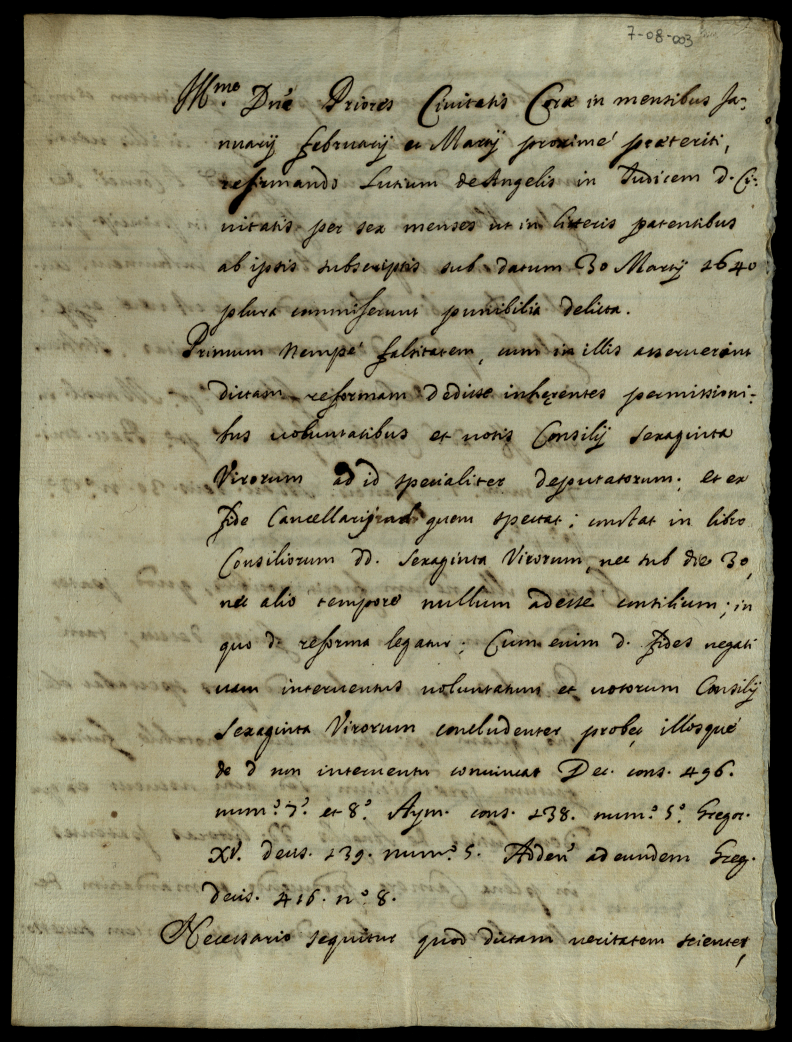 7-08-003
Ill.me Dne Priores Ciuitatis Coræ in mensibus Ja-
nuarij februarij et Martij proximé præteriti,
refirmando Lutium de Angelis in Judicem d. Ci-
uitatis per sex menses ut in litteris patentibus
ab ipsis subscriptis sub datum 30 Martij 1640
plura commiserunt punibilia delicta.
Primum nempé falsitatem, cum in illis asseuerauint
dictam reformam dedisse inhęrentes permissioni-
bus uoluntatibus et uotis Consilij sexaginta
Virorum ad id specialiter deputatorum; et ex
fide Cancellarij ad quem spectat; constat in libro
Consiliorum dd. sexaginta Virorum, nec sub die 30,
nec alio tempore nullum adesse consilium; in
quo d. reforma legatur; Cum enim d. fides negati
uam interuentus uoluntatum et uotorum Consilij
sexaginta Virorum concludenter probet illosqué
de d non interuentu conuincat Dec. cons. 496.
num.o 7.o et 8.o Aym. cons. 138. num.o 5.o Gregor.
XV. decis. 139. num.o 5. Adden. ad eundem Greg.
decis. 416. n.o 8.
Necessario sequitur quod dictam ueritatem scienter,